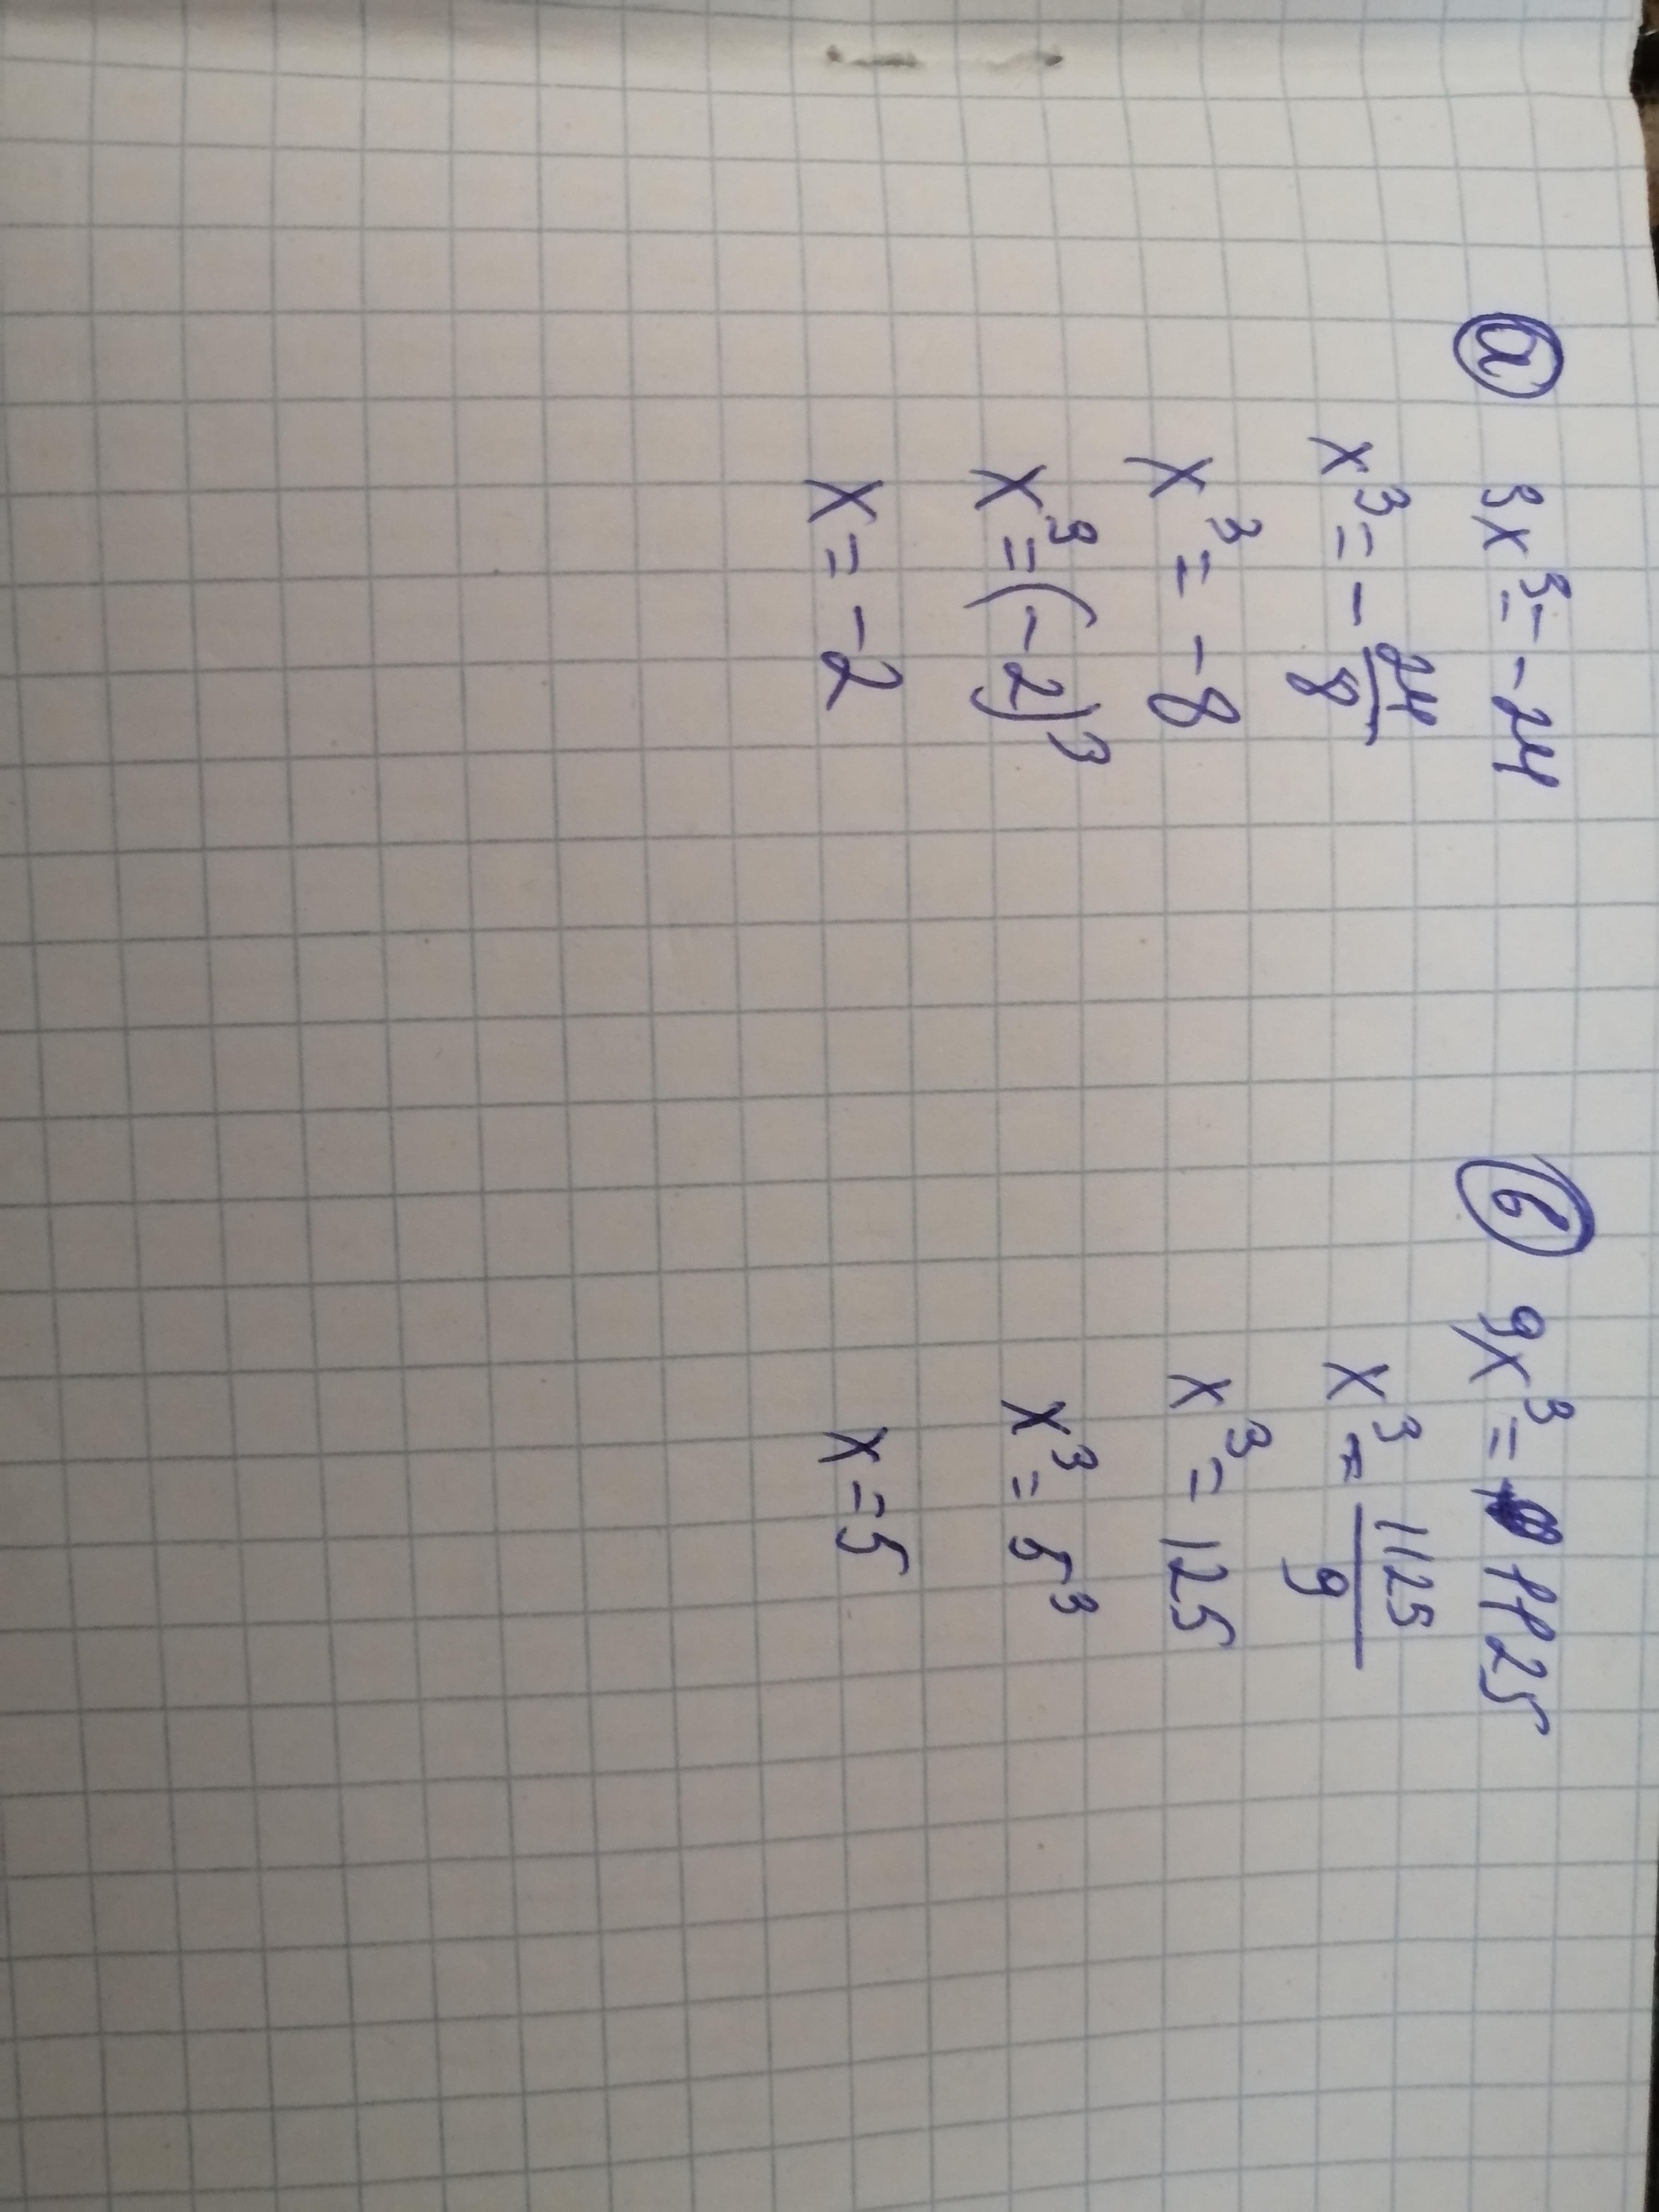 а 3x³ = -24
x³ = - 24/8
x³ = -8
x³ = (-2)³
x = -2
в 9x³ = 1125
x³ = 1125/9
x³ = 125
x³ = 5³
x = 5